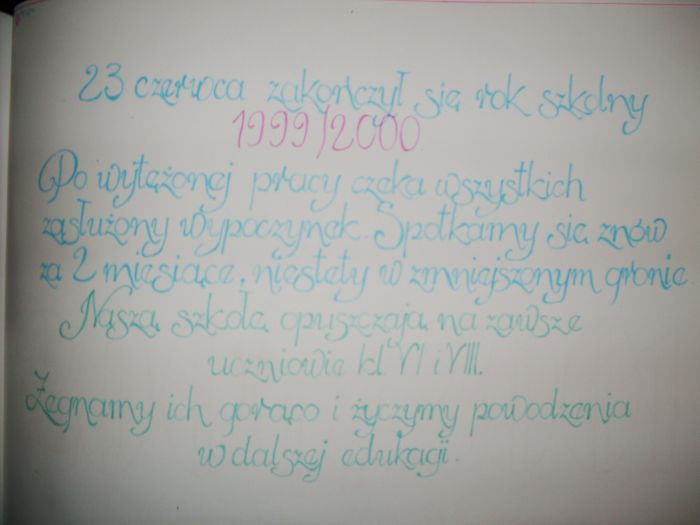 23 czerwca zakończył się rok szkolny
1999/2000
Po wytężonej pracy czeka wszystkich
zasłużony wypoczynek. Spotkamy się znów
za 2 miesiące, niestety w zmniejszonym gronie.
Naszą szkołę opuszczają na zawsze
uczniowie kl. VI i VIII.
Żegnamy ich gorąco i życzymy powodzenia
w dalszej edukacji.